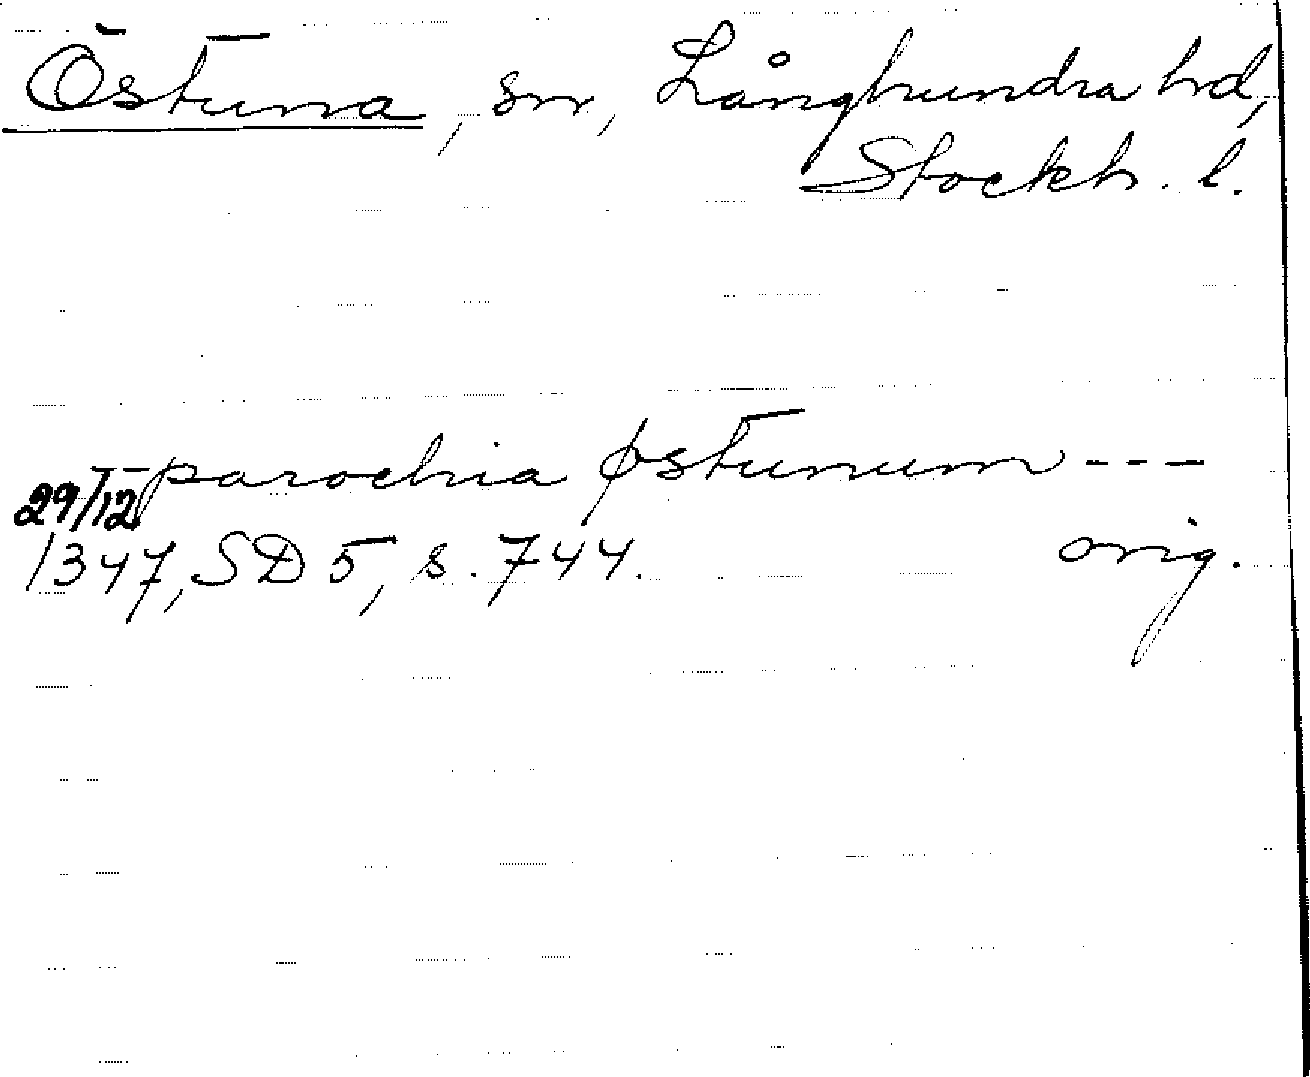 Östuna, sn, Långhundra hd,
Stockh. l.
parochia østunum ---
29/12 1347, SD 5, s. 744. orig.